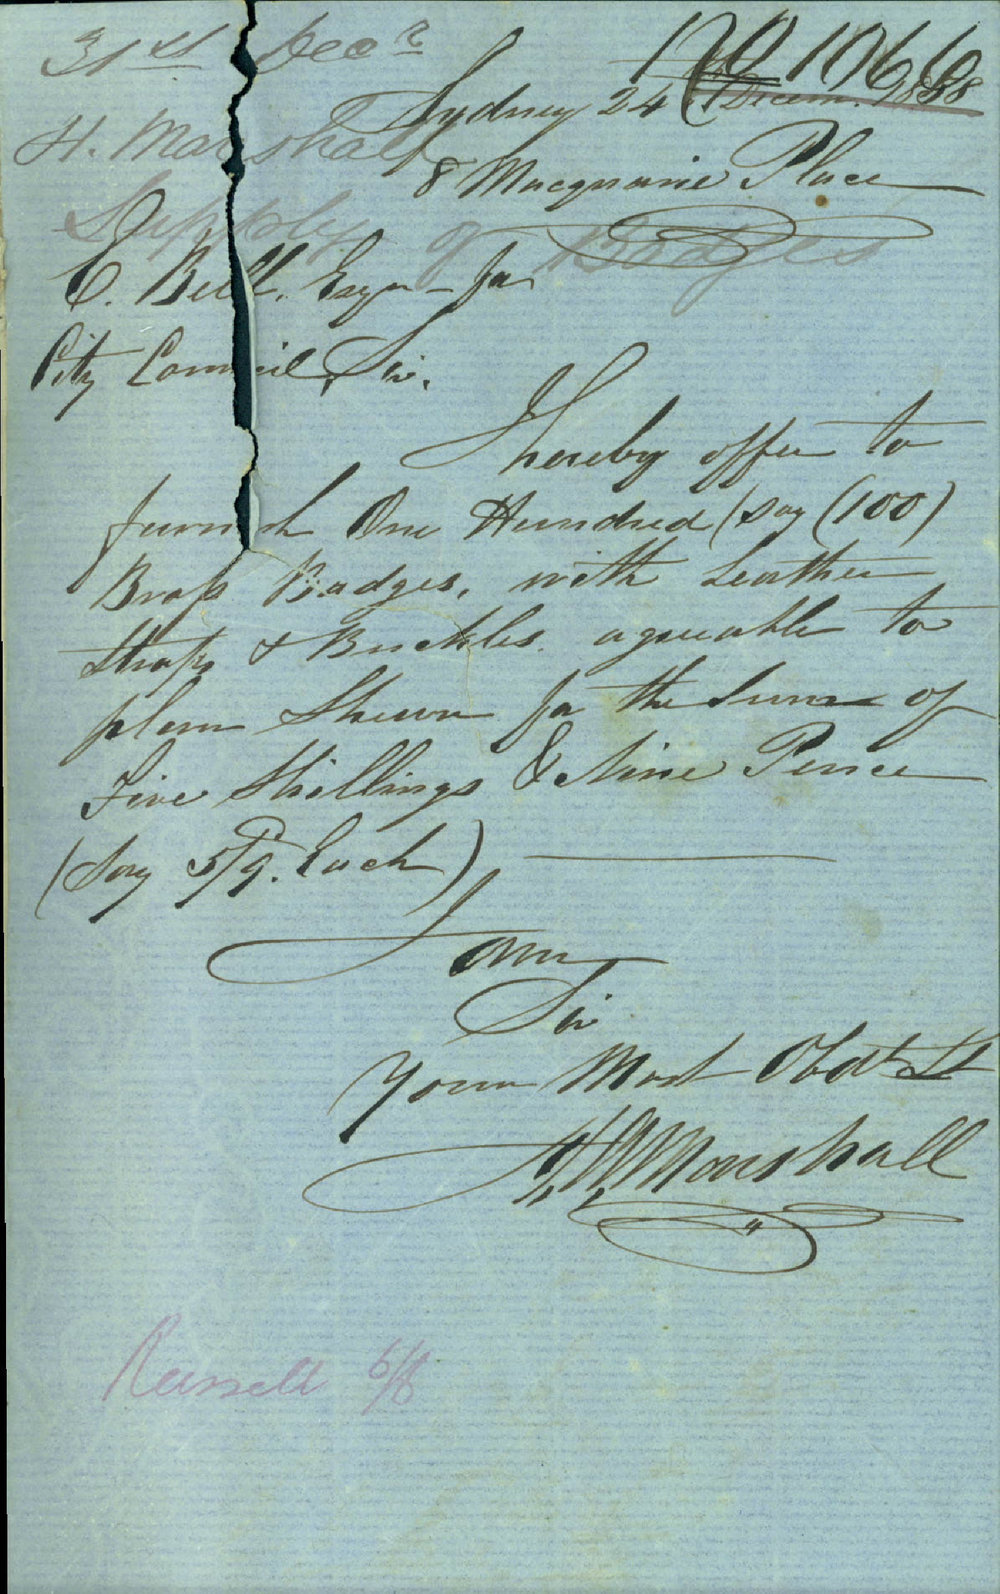 31st Decr
No 1066
Sydney 24 Decem. 1858
H. Marshall
8 Macquarie Place
Supply of Badges
E. Bell. Esqr - for
City Council, Sir.
I hereby offer to
furnish One Hundred (say (100)
Brass Badges, with Leather
Straps & Buckles. agreeable to
plan Shewn for the Sum of
Five Shillings & Nine Pence
(Say 5/9. Each)
I am
Sir
Your Most Obdt St
H Marshall
Russell 6/6